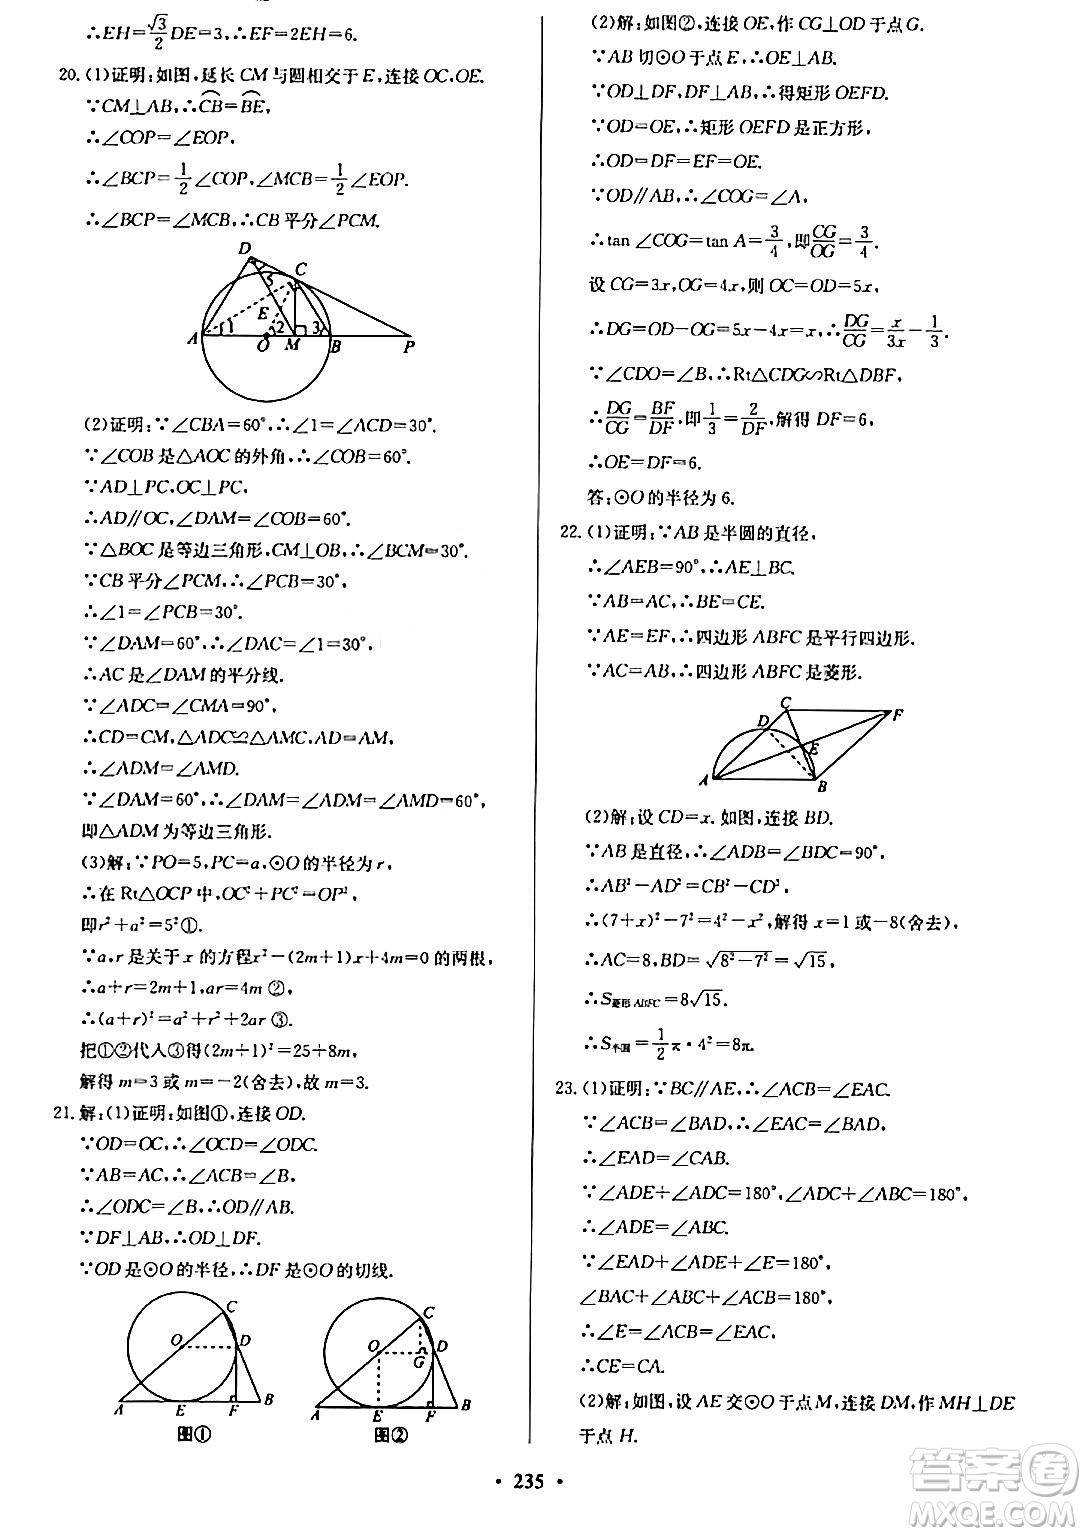 ∴EH=√3/2 DE=3,∴EF=2EH=6.
20.(1)证明:如图,延长CM与圆相交于E,连接OC,OE.
∵CM⊥AB,∴C͡B=B͡E,
∴∠COP=∠EOP,
∴∠BCP=1/2∠COP,∠MCB=1/2∠EOP.
∴∠BCP=∠MCB,∴CB平分∠PCM.
D
C
5
E
1
2
3
A
O
M
B
P
(2)证明:∵∠CBA=60°,∴∠1=∠ACD=30°.
∵∠COB是△AOC的外角,∴∠COB=60°.
∵AD⊥PC,OC⊥PC,
∴AD∥OC,∠DAM=∠COB=60°.
∵△BOC是等边三角形,CM⊥OB,∴∠BCM=30°.
∵CB平分∠PCM,∴∠PCB=30°,
∴∠1=∠PCB=30°.
∵∠DAM=60°,∴∠DAC=∠1=30°,
∴AC是∠DAM的平分线.
∵∠ADC=∠CMA=90°,
∴CD=CM,△ADC≌△AMC,AD=AM,
∴∠ADM=∠AMD.
∵∠DAM=60°,∴∠DAM=∠ADM=∠AMD=60°,
即△ADM为等边三角形.
(3)解:∵PO=5,PC=a,⊙O的半径为r,
∴在Rt△OCP中,OC²+PC²=OP²,
即r²+a²=5²①.
∵a,r是关于x的方程x²-(2m+1)x+4m=0的两根,
∴a+r=2m+1,ar=4m ②,
∴(a+r)²=a²+r²+2ar ③.
把①②代入③得(2m+1)²=25+8m,
解得m=3或m=-2(舍去),故m=3.
21.解:(1)证明:如图①,连接OD.
∵OD=OC,∴∠OCD=∠ODC.
∵AB=AC,∴∠ACB=∠B,
∴∠ODC=∠B,∴OD∥AB.
∵DF⊥AB,∴OD⊥DF.
∵OD是⊙O的半径,∴DF是⊙O的切线.
C
O
D
A
E
F
B
图①
C
O
D
G
A
E
F
B
图②
(2)解:如图②,连接OE,作CG⊥OD于点G.
∵AB切⊙O于点E,∴OE⊥AB.
∵OD⊥DF,DF⊥AB,∴得矩形OEFD.
∵OD=OE,∴矩形OEFD是正方形,
∴OD=DF=EF=OE.
∵OD∥AB,∴∠COG=∠A,
∴tan∠COG=tan A=3/4,即CG/OG=3/4.
设CG=3x,OG=4x,则OC=OD=5x,
∴DG=OD-OG=5x-4x=x,∴DG/CG=x/3x-1/3.
∵∠CDO=∠B,∴Rt△CDG∽Rt△DBF,
∴DG/CG=BF/DF,即1/3=2/DF,解得DF=6,
∴OE=DF=6.
答:⊙O的半径为6.
22.(1)证明:∵AB是半圆的直径,
∴∠AEB=90°,∴AE⊥BC.
∵AB=AC,∴BE=CE.
∵AE=EF,∴四边形ABFC是平行四边形.
∵AC=AB,∴四边形ABFC是菱形.
C
D
F
E
A
B
(2)解:设CD=x.如图,连接BD.
∵AB是直径,∴∠ADB=∠BDC=90°,
∴AB²-AD²=CB²-CD²,
∴(7+x)²-7²=4²-x²,解得x=1或-8(舍去),
∴AC=8,BD=√(8²-7²)=√15,
∴S菱形ABFC=8√15.
∴S半圆=1/2π·4²=8π.
23.(1)证明:∵BC∥AE,∴∠ACB=∠EAC.
∵∠ACB=∠BAD,∴∠EAC=∠BAD,
∴∠EAD=∠CAB.
∵∠ADE+∠ADC=180°,∠ADC+∠ABC=180°,
∴∠ADE=∠ABC.
∵∠EAD+∠ADE+∠E=180°,
∠BAC+∠ABC+∠ACB=180°,
∴∠E=∠ACB=∠EAC,
∴CE=CA.
(2)解:如图,设AE交⊙O于点M,连接DM,作MH⊥DE
于点H.
• 235 •
答案圈
MXQE.COM